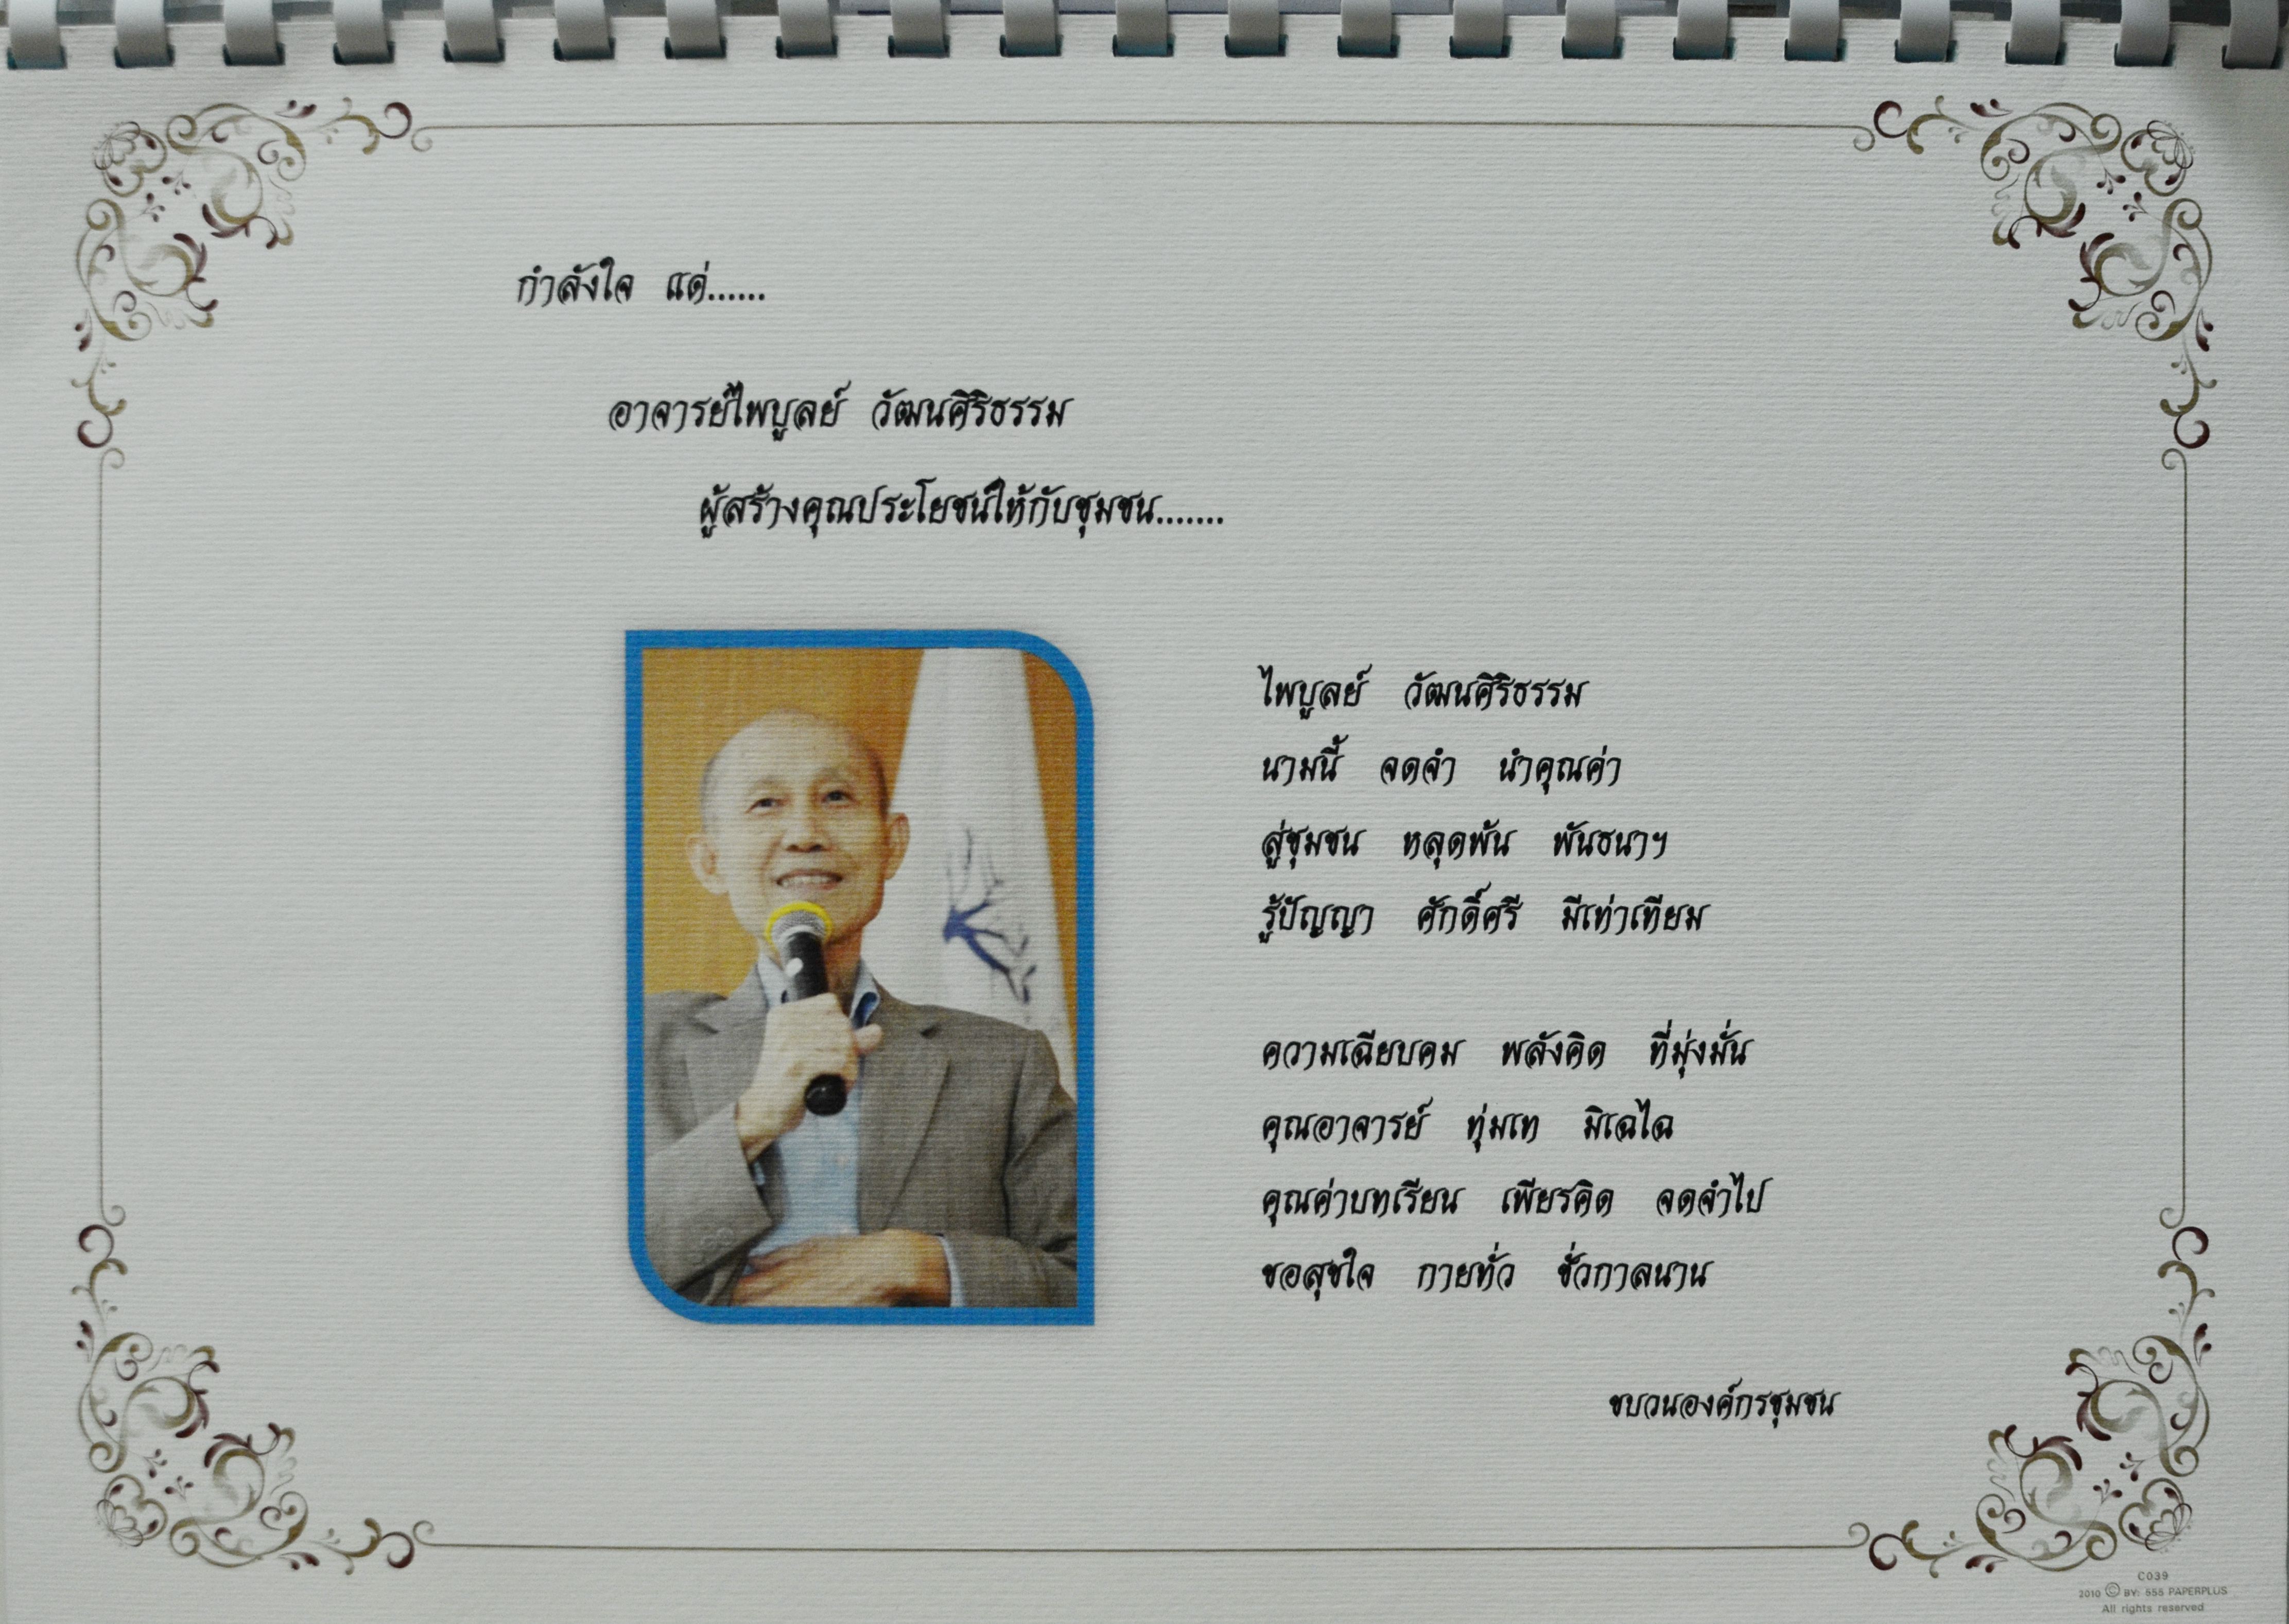 กำลังใจ แด่......
อาจารย์ไพบูลย์ วัฒนศิริธรรม
ผู้สร้างคุณประโยชน์ให้กับชุมชน.......
ไพบูลย์ วัฒนศิริธรรม
นามนี้ จดจำ นำคุณค่า
สู่ชุมชน หลุดพ้น พันธนาฯ
รู้ปัญญา ศักดิ์ศรี มีเท่าเทียม
ความเฉียบคม พลังคิด ที่มุ่งมั่น
คุณอาจารย์ ทุ่มเท มิเฉไฉ
คุณค่าบทเรียน เพียรคิด จดจำไป
ขอสุขใจ กายทั่ว ชั่วกาลนาน
ขบวนองค์กรชุมชน
C039
2010 © BY: 555 PAPERPLUS
All rights reserved